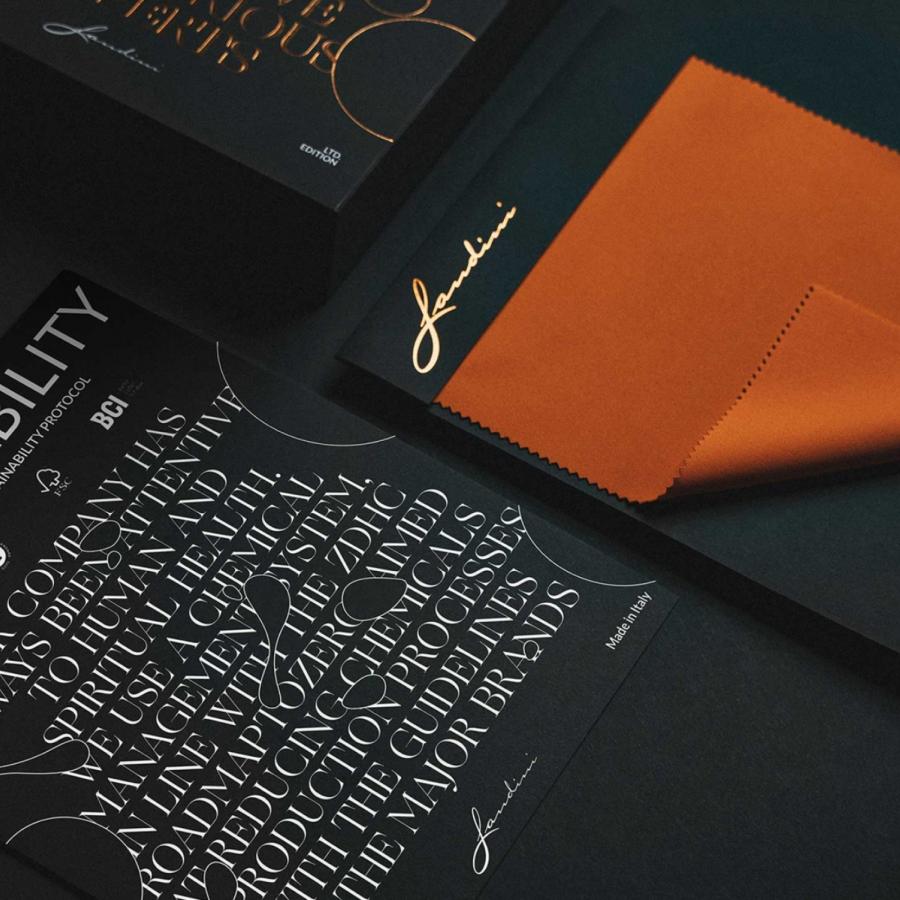 LTD.
EDITION
Landini
Landini
BILITY
PROTOCOL
BCI
FSC
COMPANY HAS
WAYS BEEN ATTENTIVE
TO HUMAN AND
SPIRITUAL HEALTH.
WE USE A CHEMICAL
MANAGEMENT SYSTEM,
N LINE WITH THE ZDHC
ROADMAP TO ZERO AIMED
AT REDUCING CHEMICALS
PRODUCTION PROCESSES
ITH THE GUIDELINES
THE MAJOR BRANDS
Made in Italy
Landini